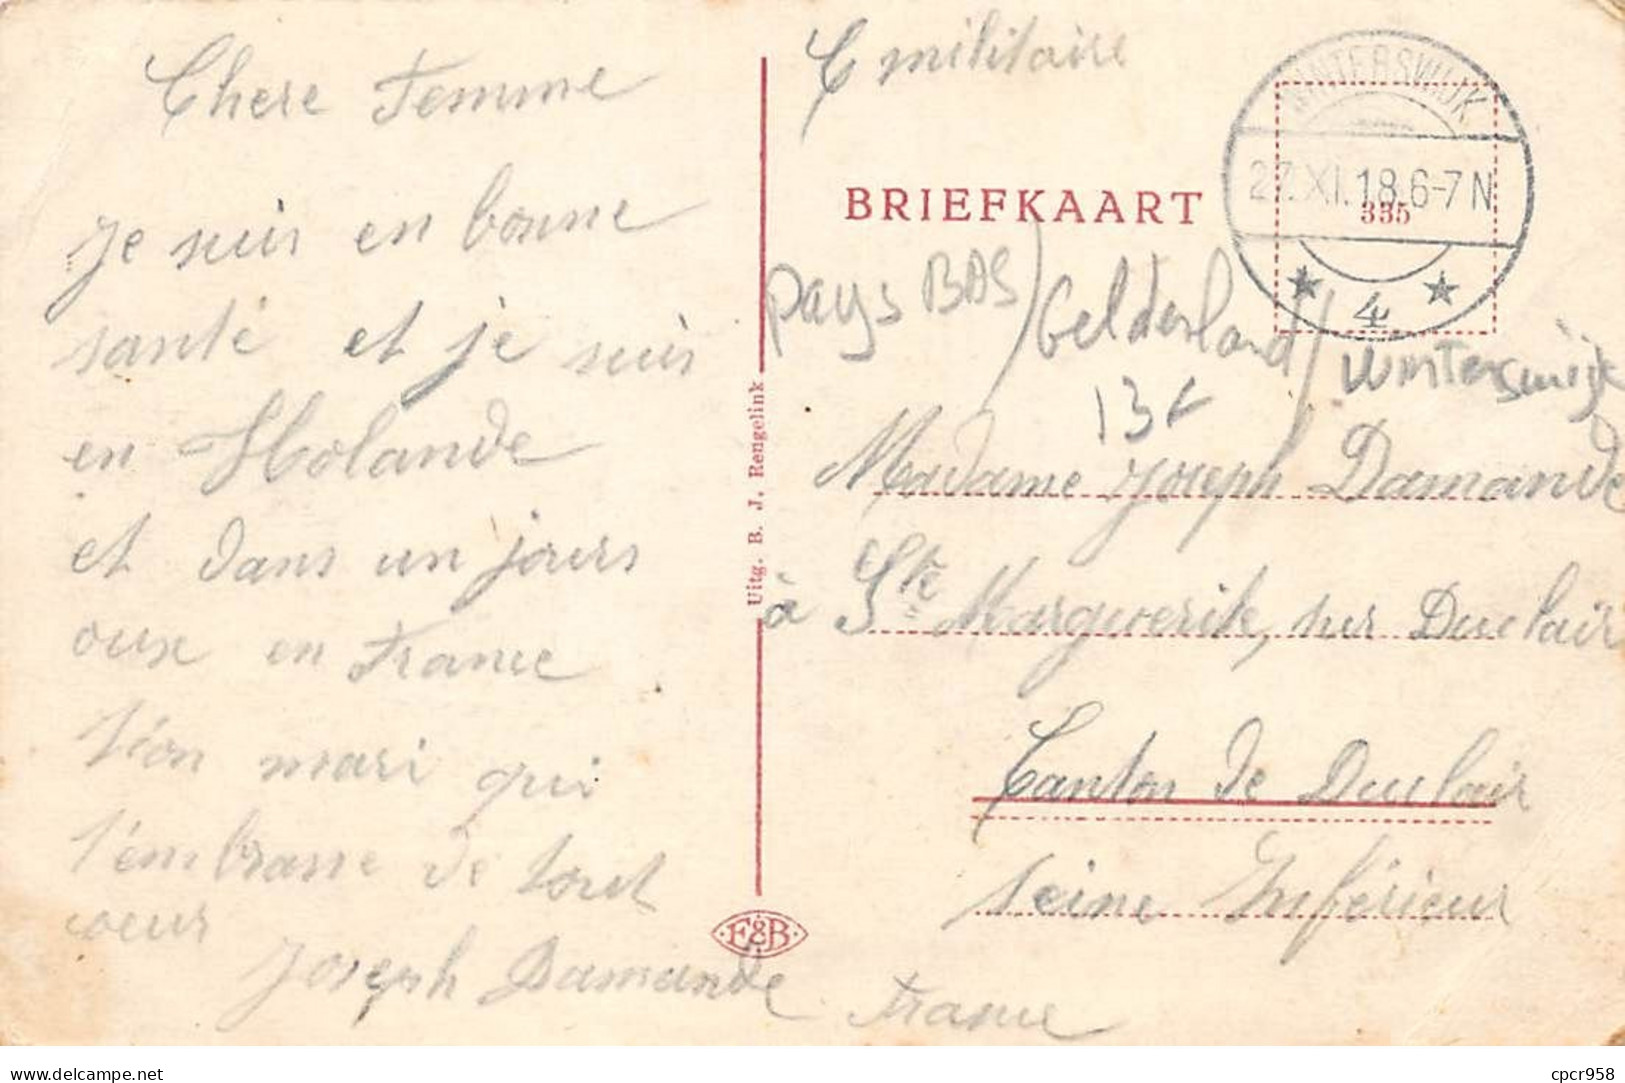 Chere Femme
je suis en bonne
santé et je suis
en Holande
et dans un jours
oux en France
t'on mari qui
t'embrasse de tout
coeur
Joseph Damande
Uitg. B. J. Rengelink
F&B
C militaire
BRIEFKAART
WINTERSWIJK
27.XI.18.6-7N
4
335
Pays BAS / Gelderland / Winterswijk
13
Madame Joseph Damande
à Ste Marguerite, sur Duclair
Canton de Duclair
Seine Inférieur
France
delcampe.net
cpcr958